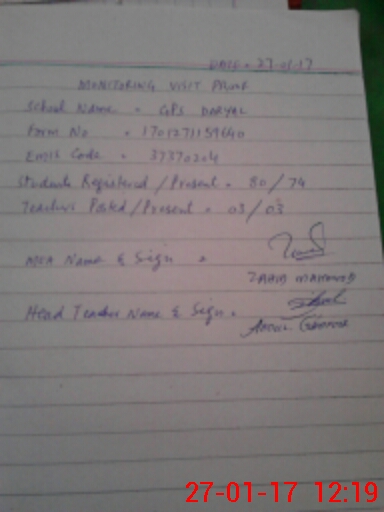 DATE = 27-01-17
MONITORING VISIT PROOF
School Name = GPS DARYAL
Form No = 1701271159640
Emis Code = 37370204
Students Registered / Present = 80 / 74
Teachers Posted / Present = 03 / 03
MEA Name & Sign =
ZAHID MAHMOOD
Head Teacher Name & Sign =
Abdul Ghafoor
27-01-17 12:19